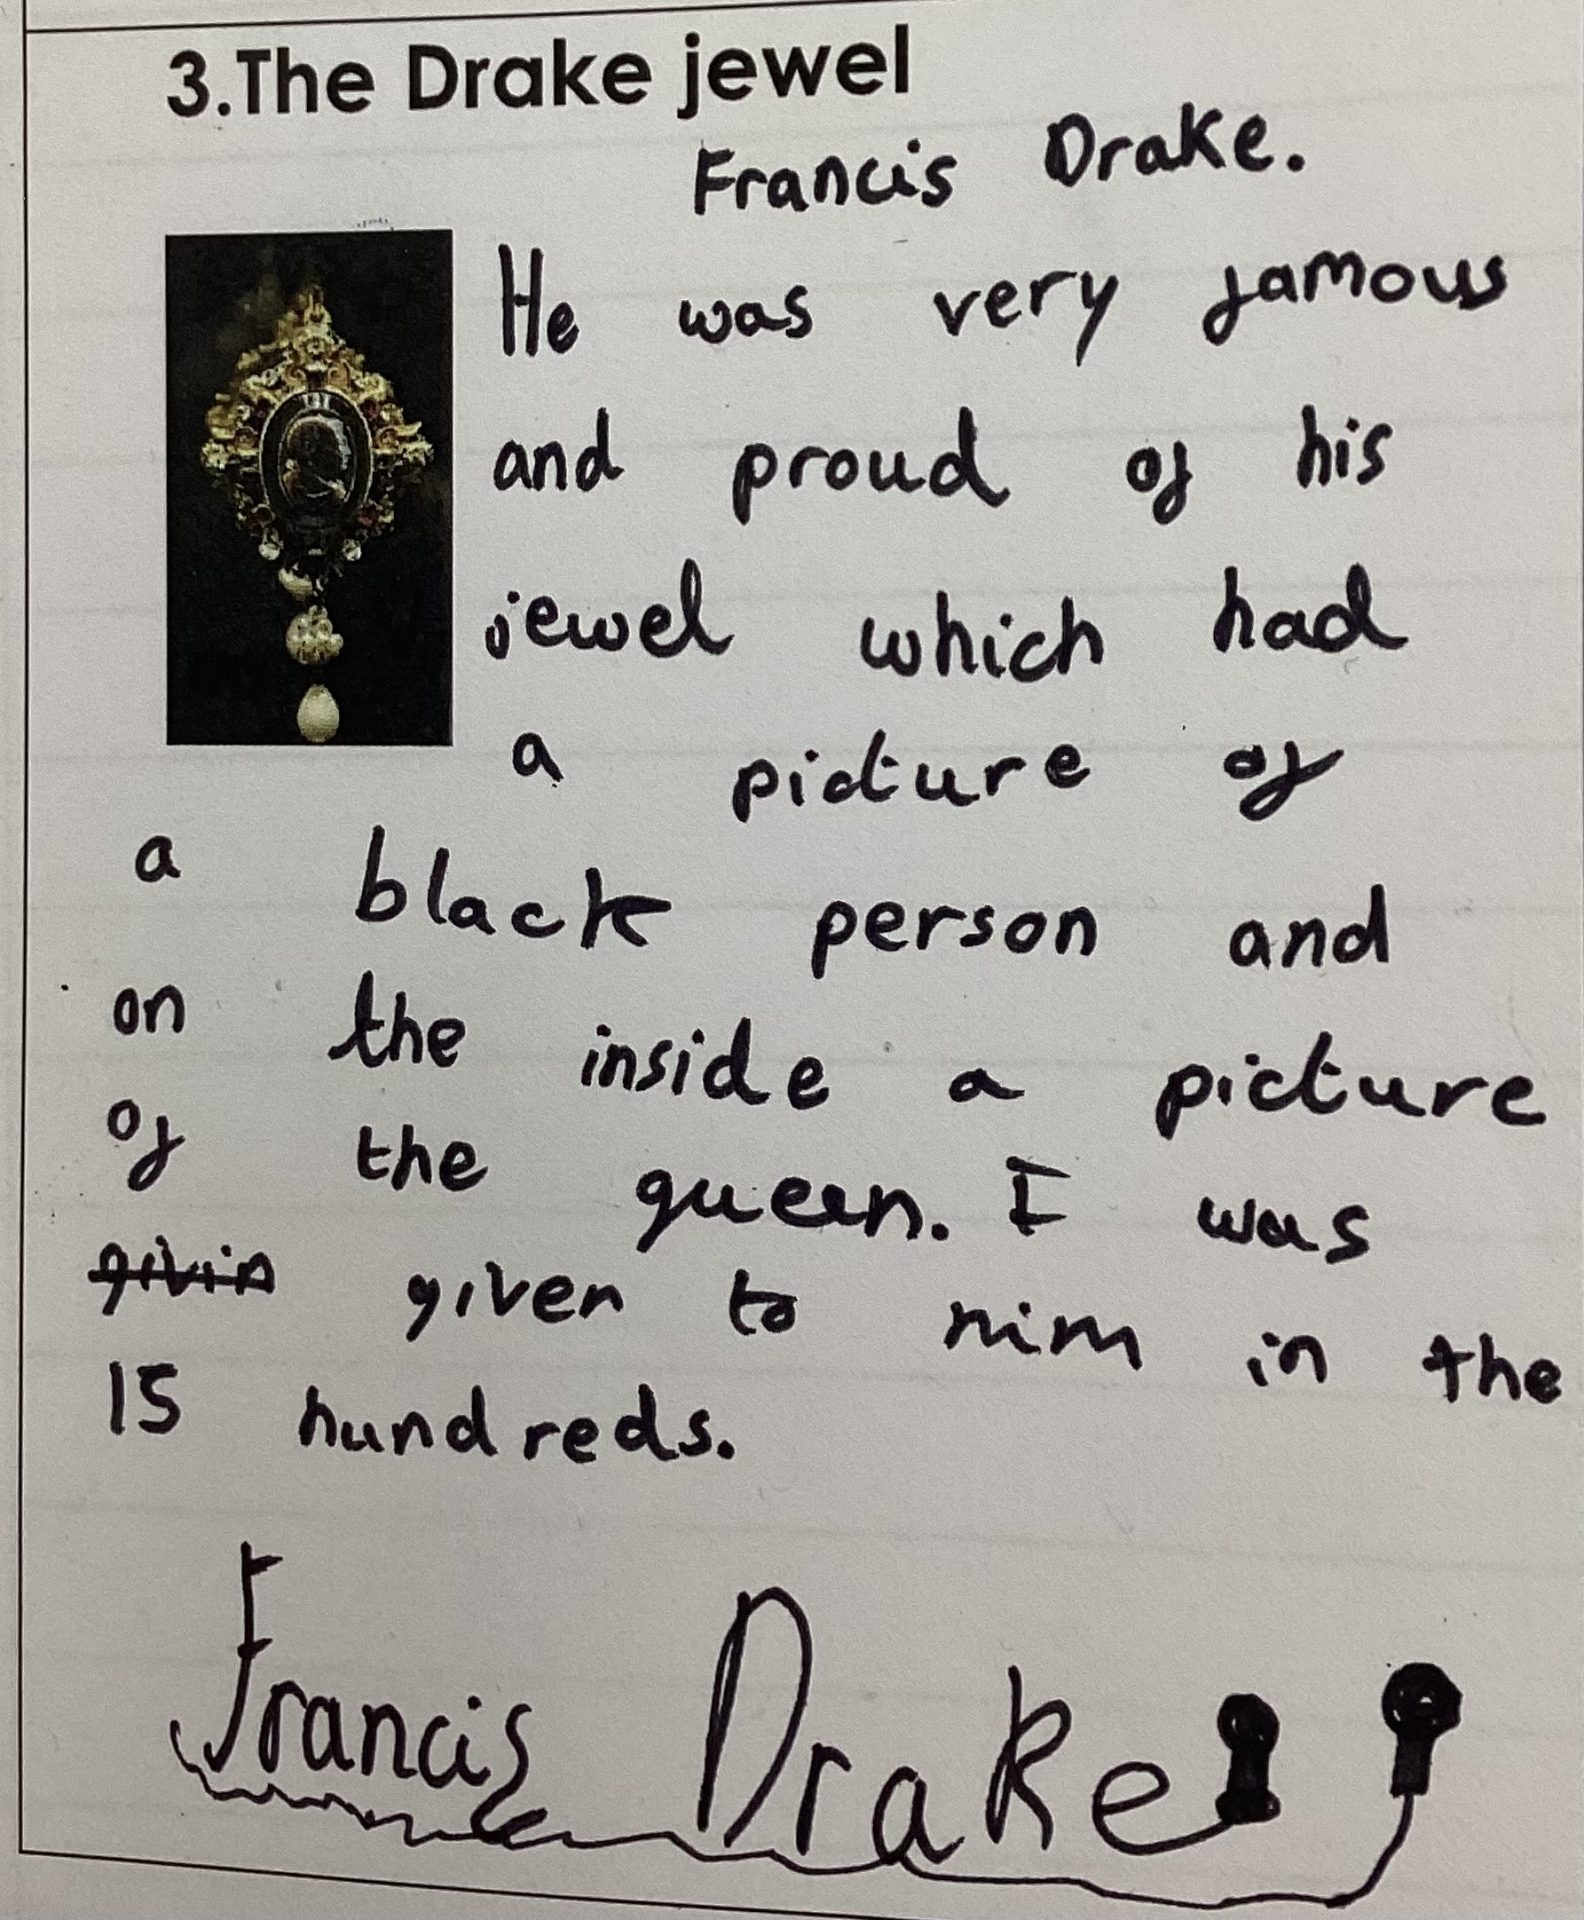 3.The Drake jewel
Francis Drake.
He was very famous
and proud of his
jewel which had
a picture of
a black person and
on the inside a picture
of the queen. I was
givin given to him in the
15 hundreds.
Francis Drake